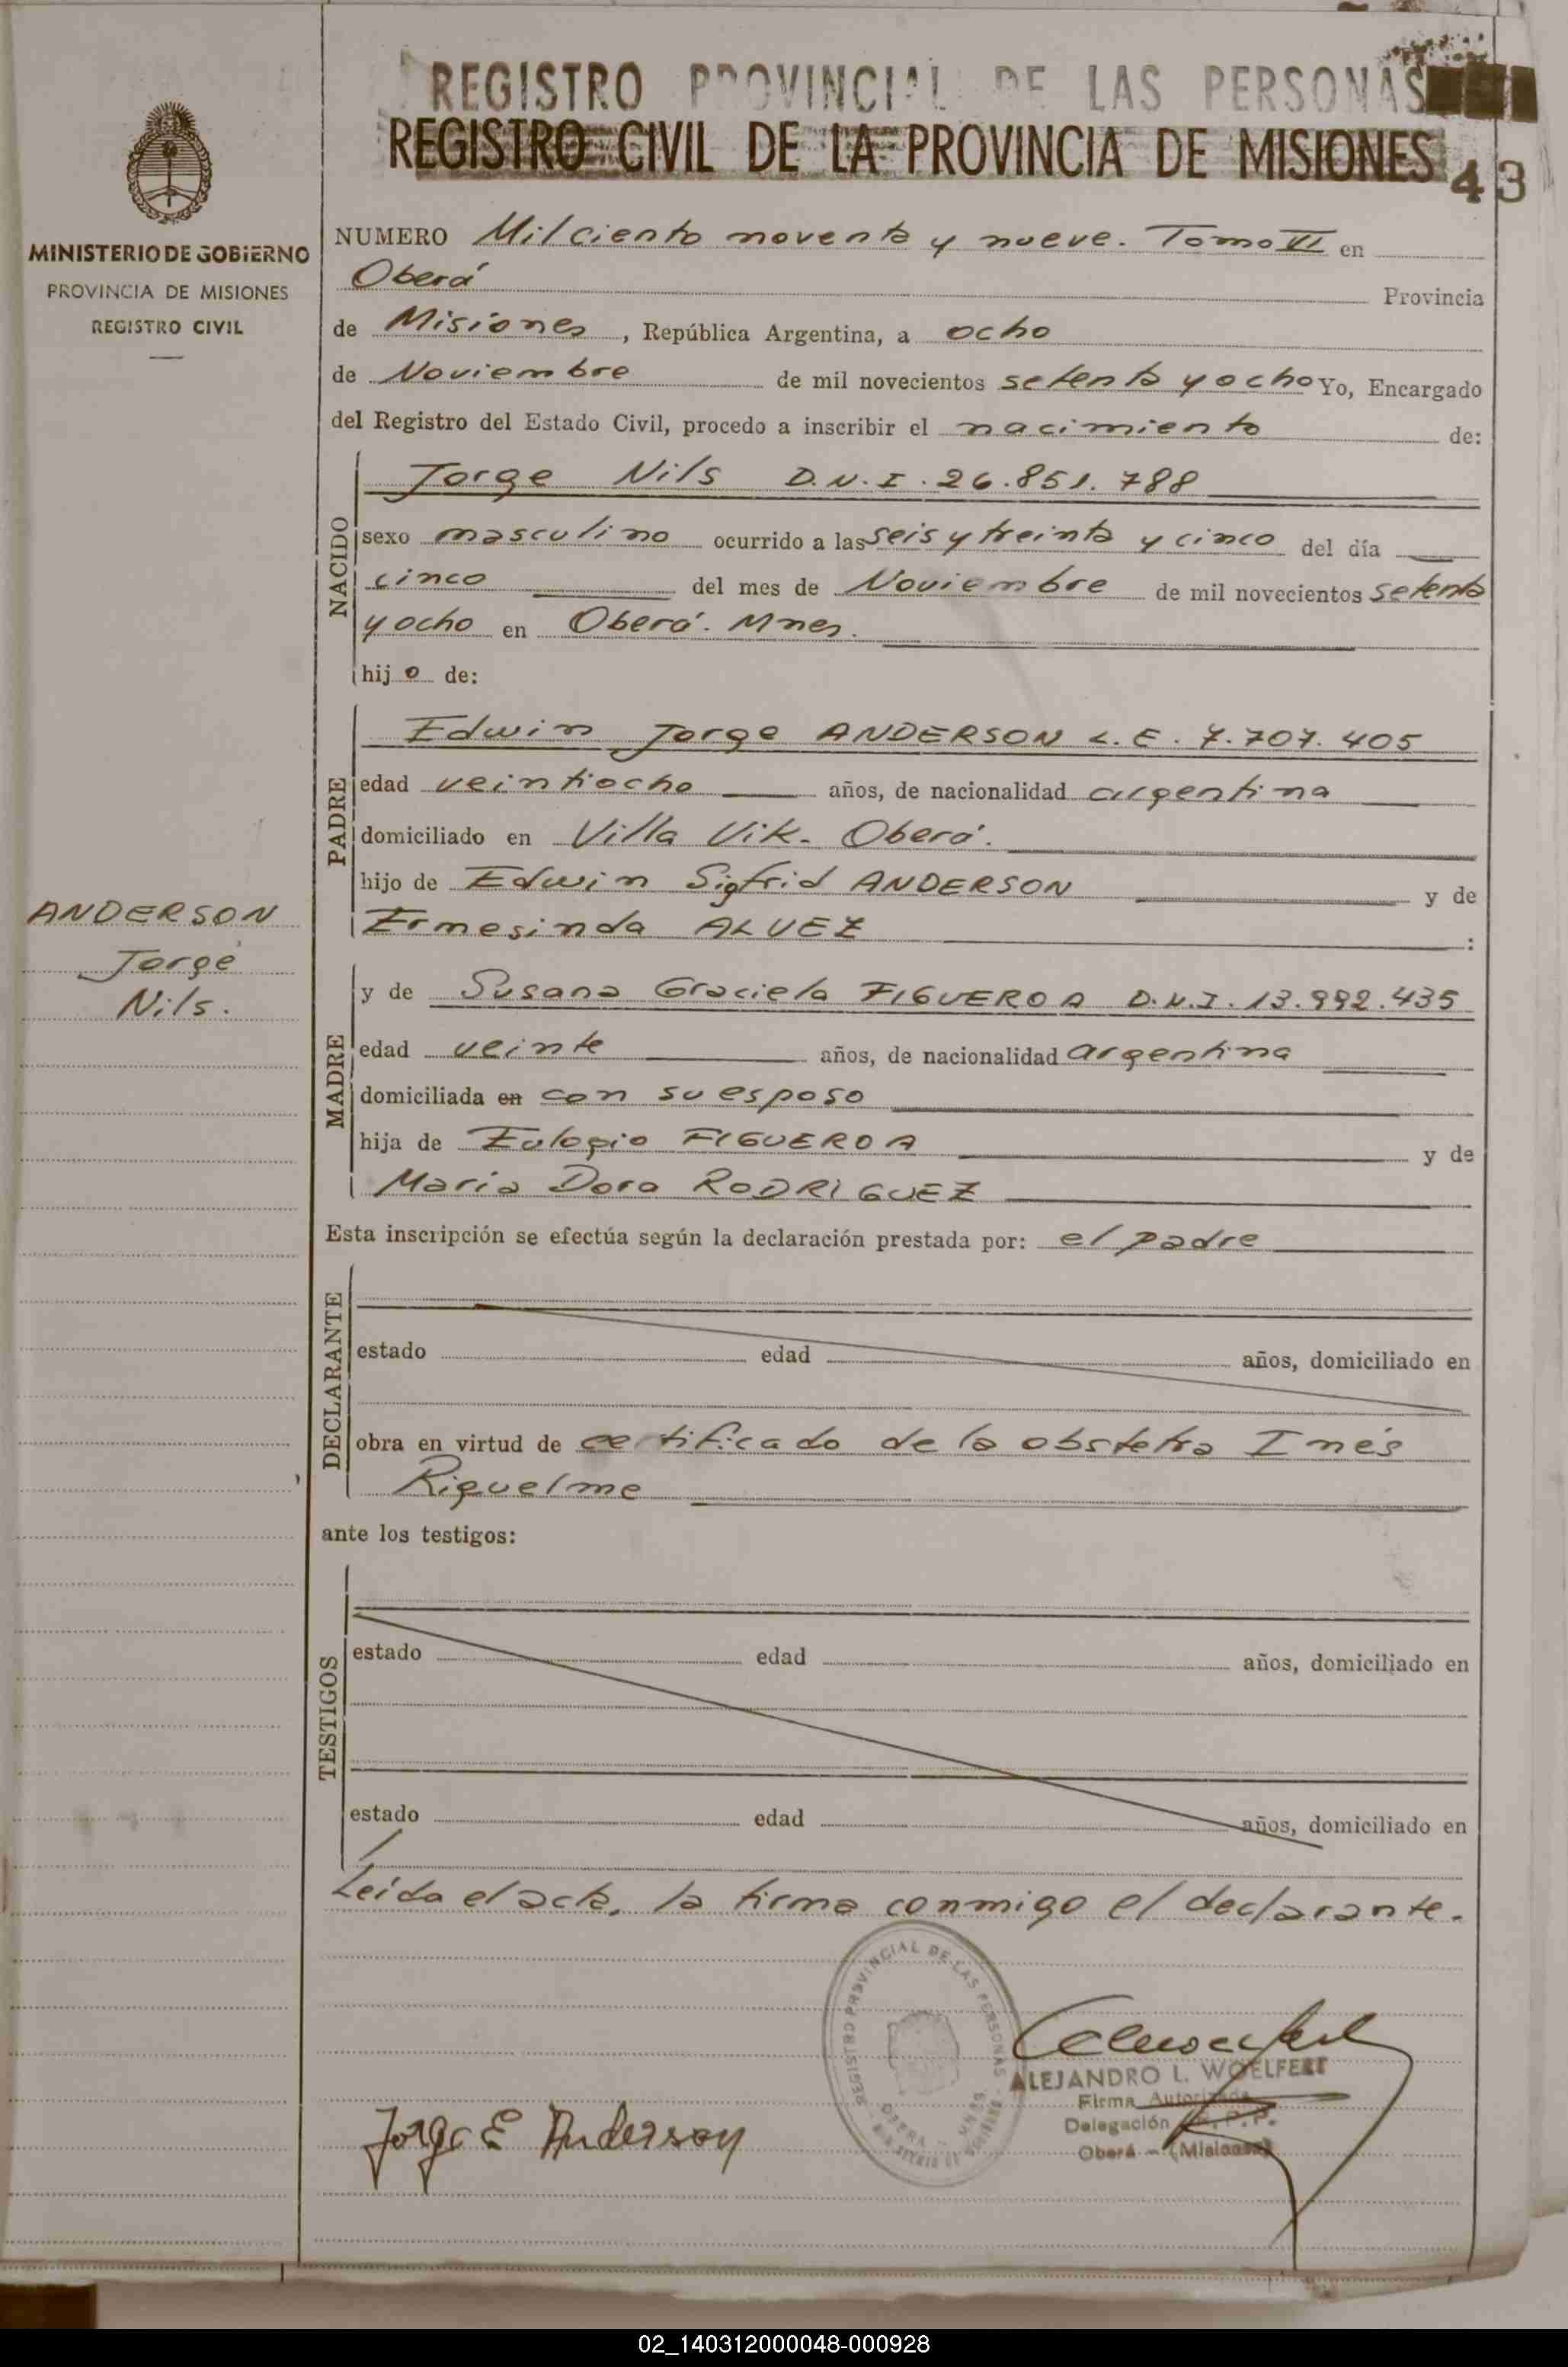 REGISTRO PROVINCIAL DE LAS PERSONAS
REGISTRO CIVIL DE LA PROVINCIA DE MISIONES
43
MINISTERIO DE GOBIERNO
PROVINCIA DE MISIONES
REGISTRO CIVIL
NUMERO Mil ciento noventa y nueve. Tomo VI en
Oberá Provincia
de Misiones, República Argentina, a ocho
de Noviembre de mil novecientos setenta y ocho Yo, Encargado
del Registro del Estado Civil, procedo a inscribir el nacimiento de:
NACIDO
Jorge Nils D.N.I. 26.851.788
sexo masculino ocurrido a las seis y treinta y cinco del día
cinco del mes de Noviembre de mil novecientos setenta
y ocho en Oberá. Mnes.
hijo de:
PADRE
Edwin Jorge ANDERSON L.E. 7.707.405
edad veintiocho años, de nacionalidad argentina
domiciliado en Villa Vik. Oberá.
hijo de Edwin Sigfrid ANDERSON y de
Ermesinda ALVEZ :
ANDERSON
Jorge
Nils.
MADRE
y de Susana Graciela FIGUEROA D.N.I. 13.992.435
edad veinte años, de nacionalidad argentina
domiciliada en con su esposo
hija de Eulogio FIGUEROA y de
María Dora RODRIGUEZ
Esta inscripción se efectúa según la declaración prestada por: el padre
DECLARANTE
estado edad años, domiciliado en
obra en virtud de certificado de la obstetra Inés
Riquelme
ante los testigos:
TESTIGOS
estado edad años, domiciliado en
estado edad años, domiciliado en
Leída el acta, la firma conmigo el declarante.
REGISTRO PROVINCIAL DE LAS PERSONAS
OBERA - MNES
Jorge E Anderson
ALEJANDRO L. WOELFERT
Firma Autorizada
Delegación R.P.P.
Oberá - (Misiones)
02_140312000048-000928